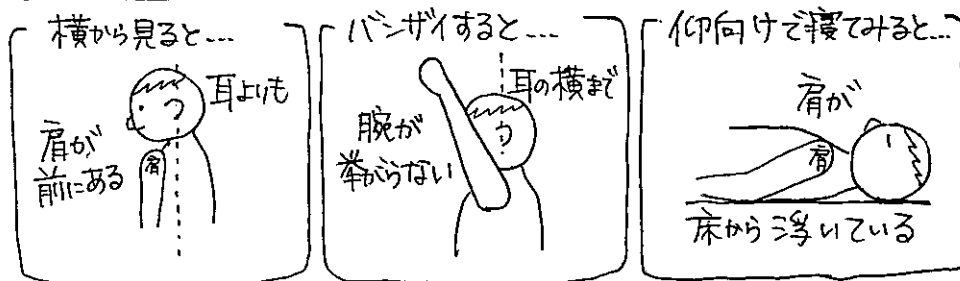 横から見ると…
耳よりも
肩が
前にある
肩
バンザイすると…
耳の横まで
腕が
挙がらない
仰向けで寝てみると…
肩が
肩
床から浮いている